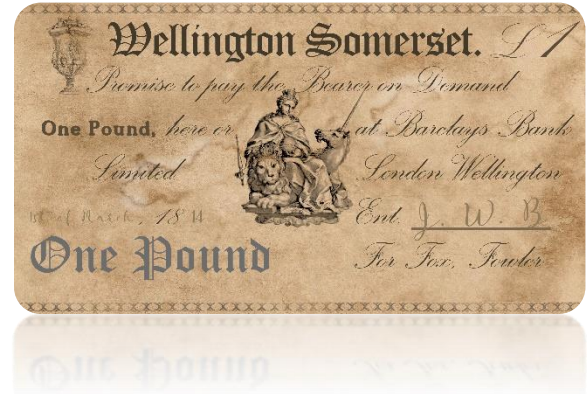 Wellington Somerset. £1
Promise to pay the Bearer on Demand
One Pound, here or at Barclays Bank
Limited London Wellington
of March, 18 Ent. J. W. B
One Pound For Fox, Fowlor